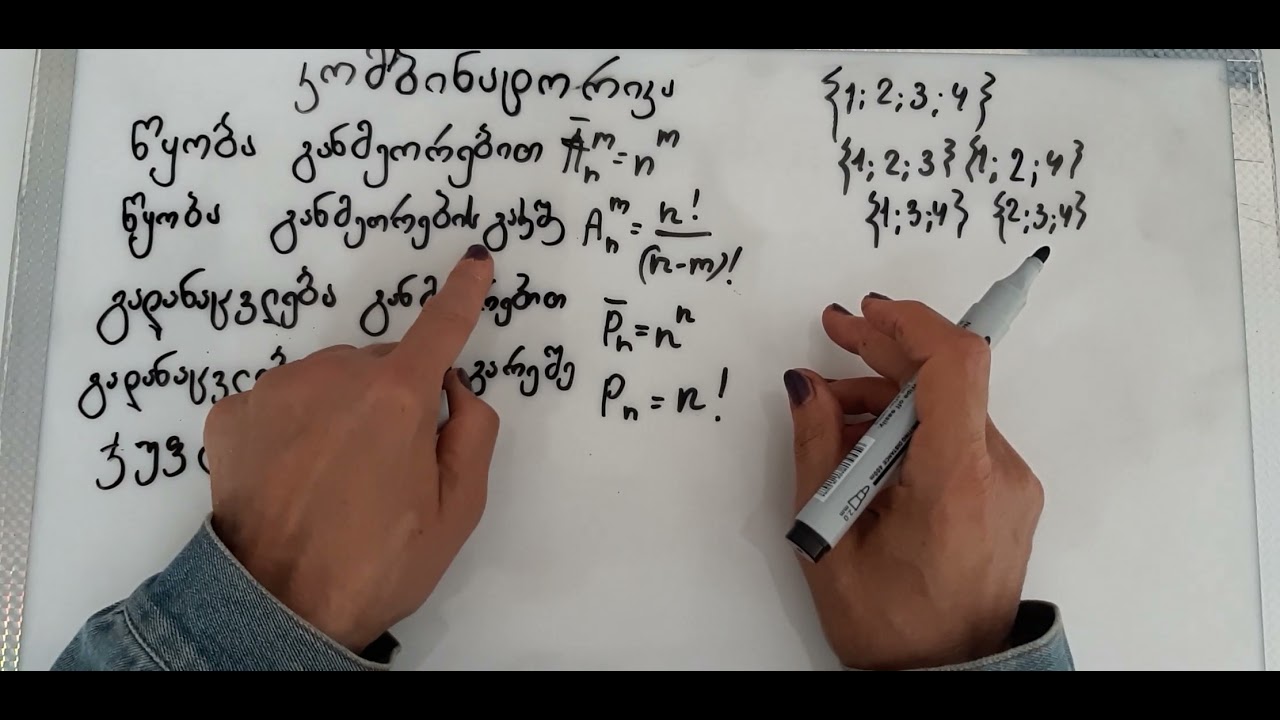 კომბინატორიკა
წყობა განმეორებით Ā_n^m = n^m
წყობა განმეორების გარეშე A_n^m = n!/(n-m)!
გადანაცვლება P̄_n = n^n
გარეშე P_n = n!
{1; 2; 3; 4}
{1; 2; 3} {1; 2; 4}
{1; 3; 4} {2; 3; 4}